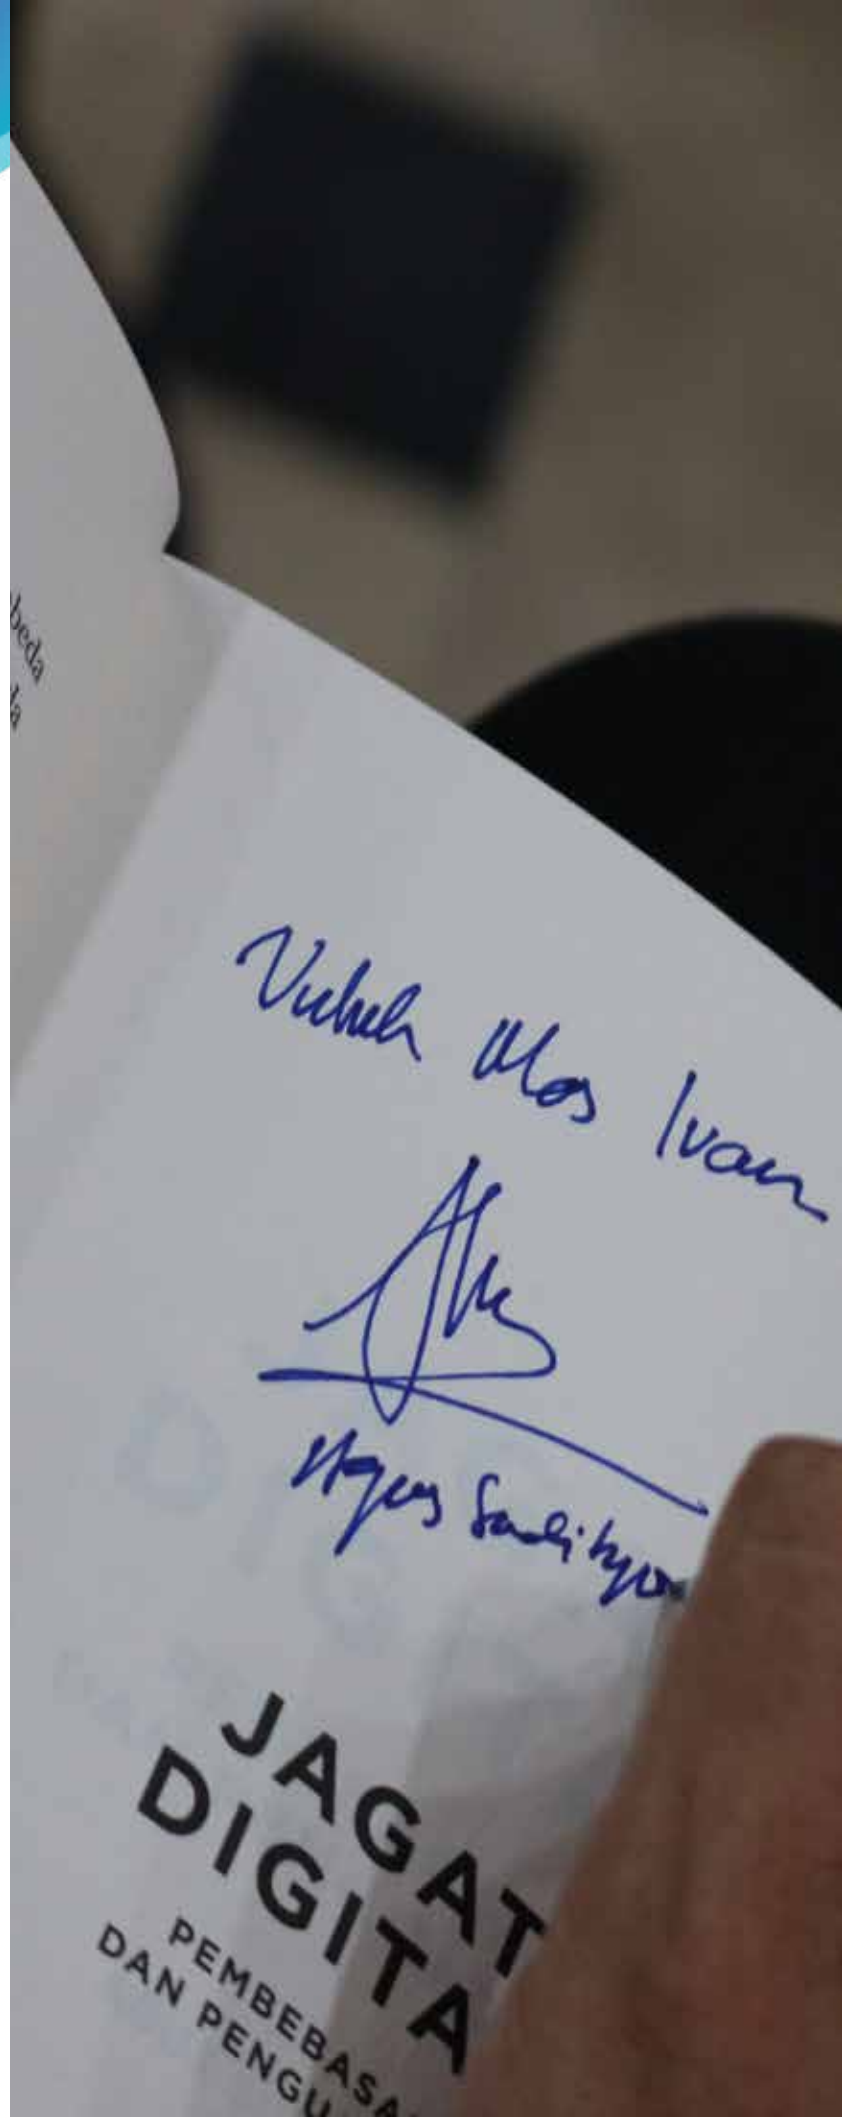 beda
da
Untuk Mas Ivan
Agus Sudibyo
JAGAT
DIGITA
PEMBEBASA
DAN PENGU